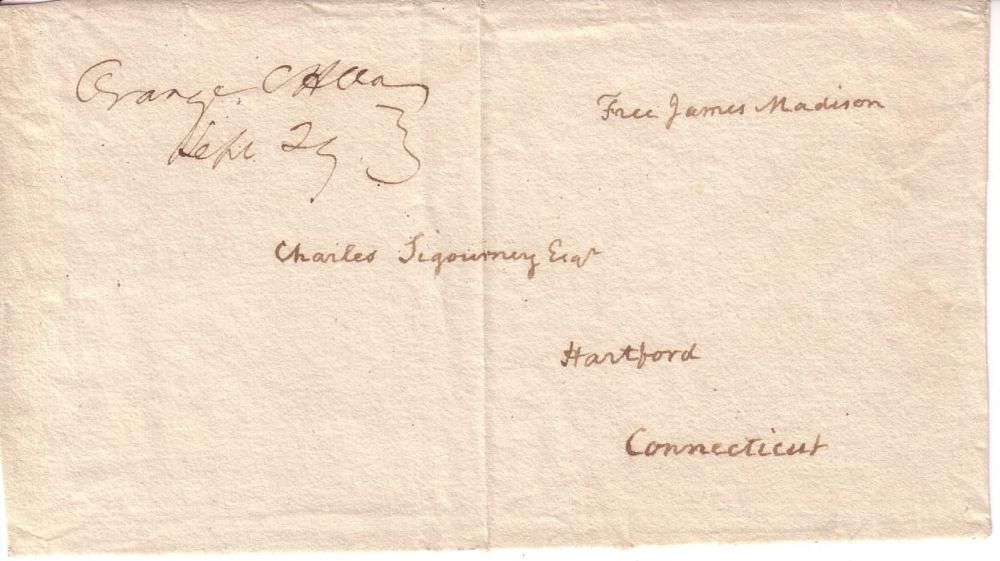 Orange CHVa
Sept. 29
Free James Madison
Charles Sigourney Esqr
Hartford
Connecticut